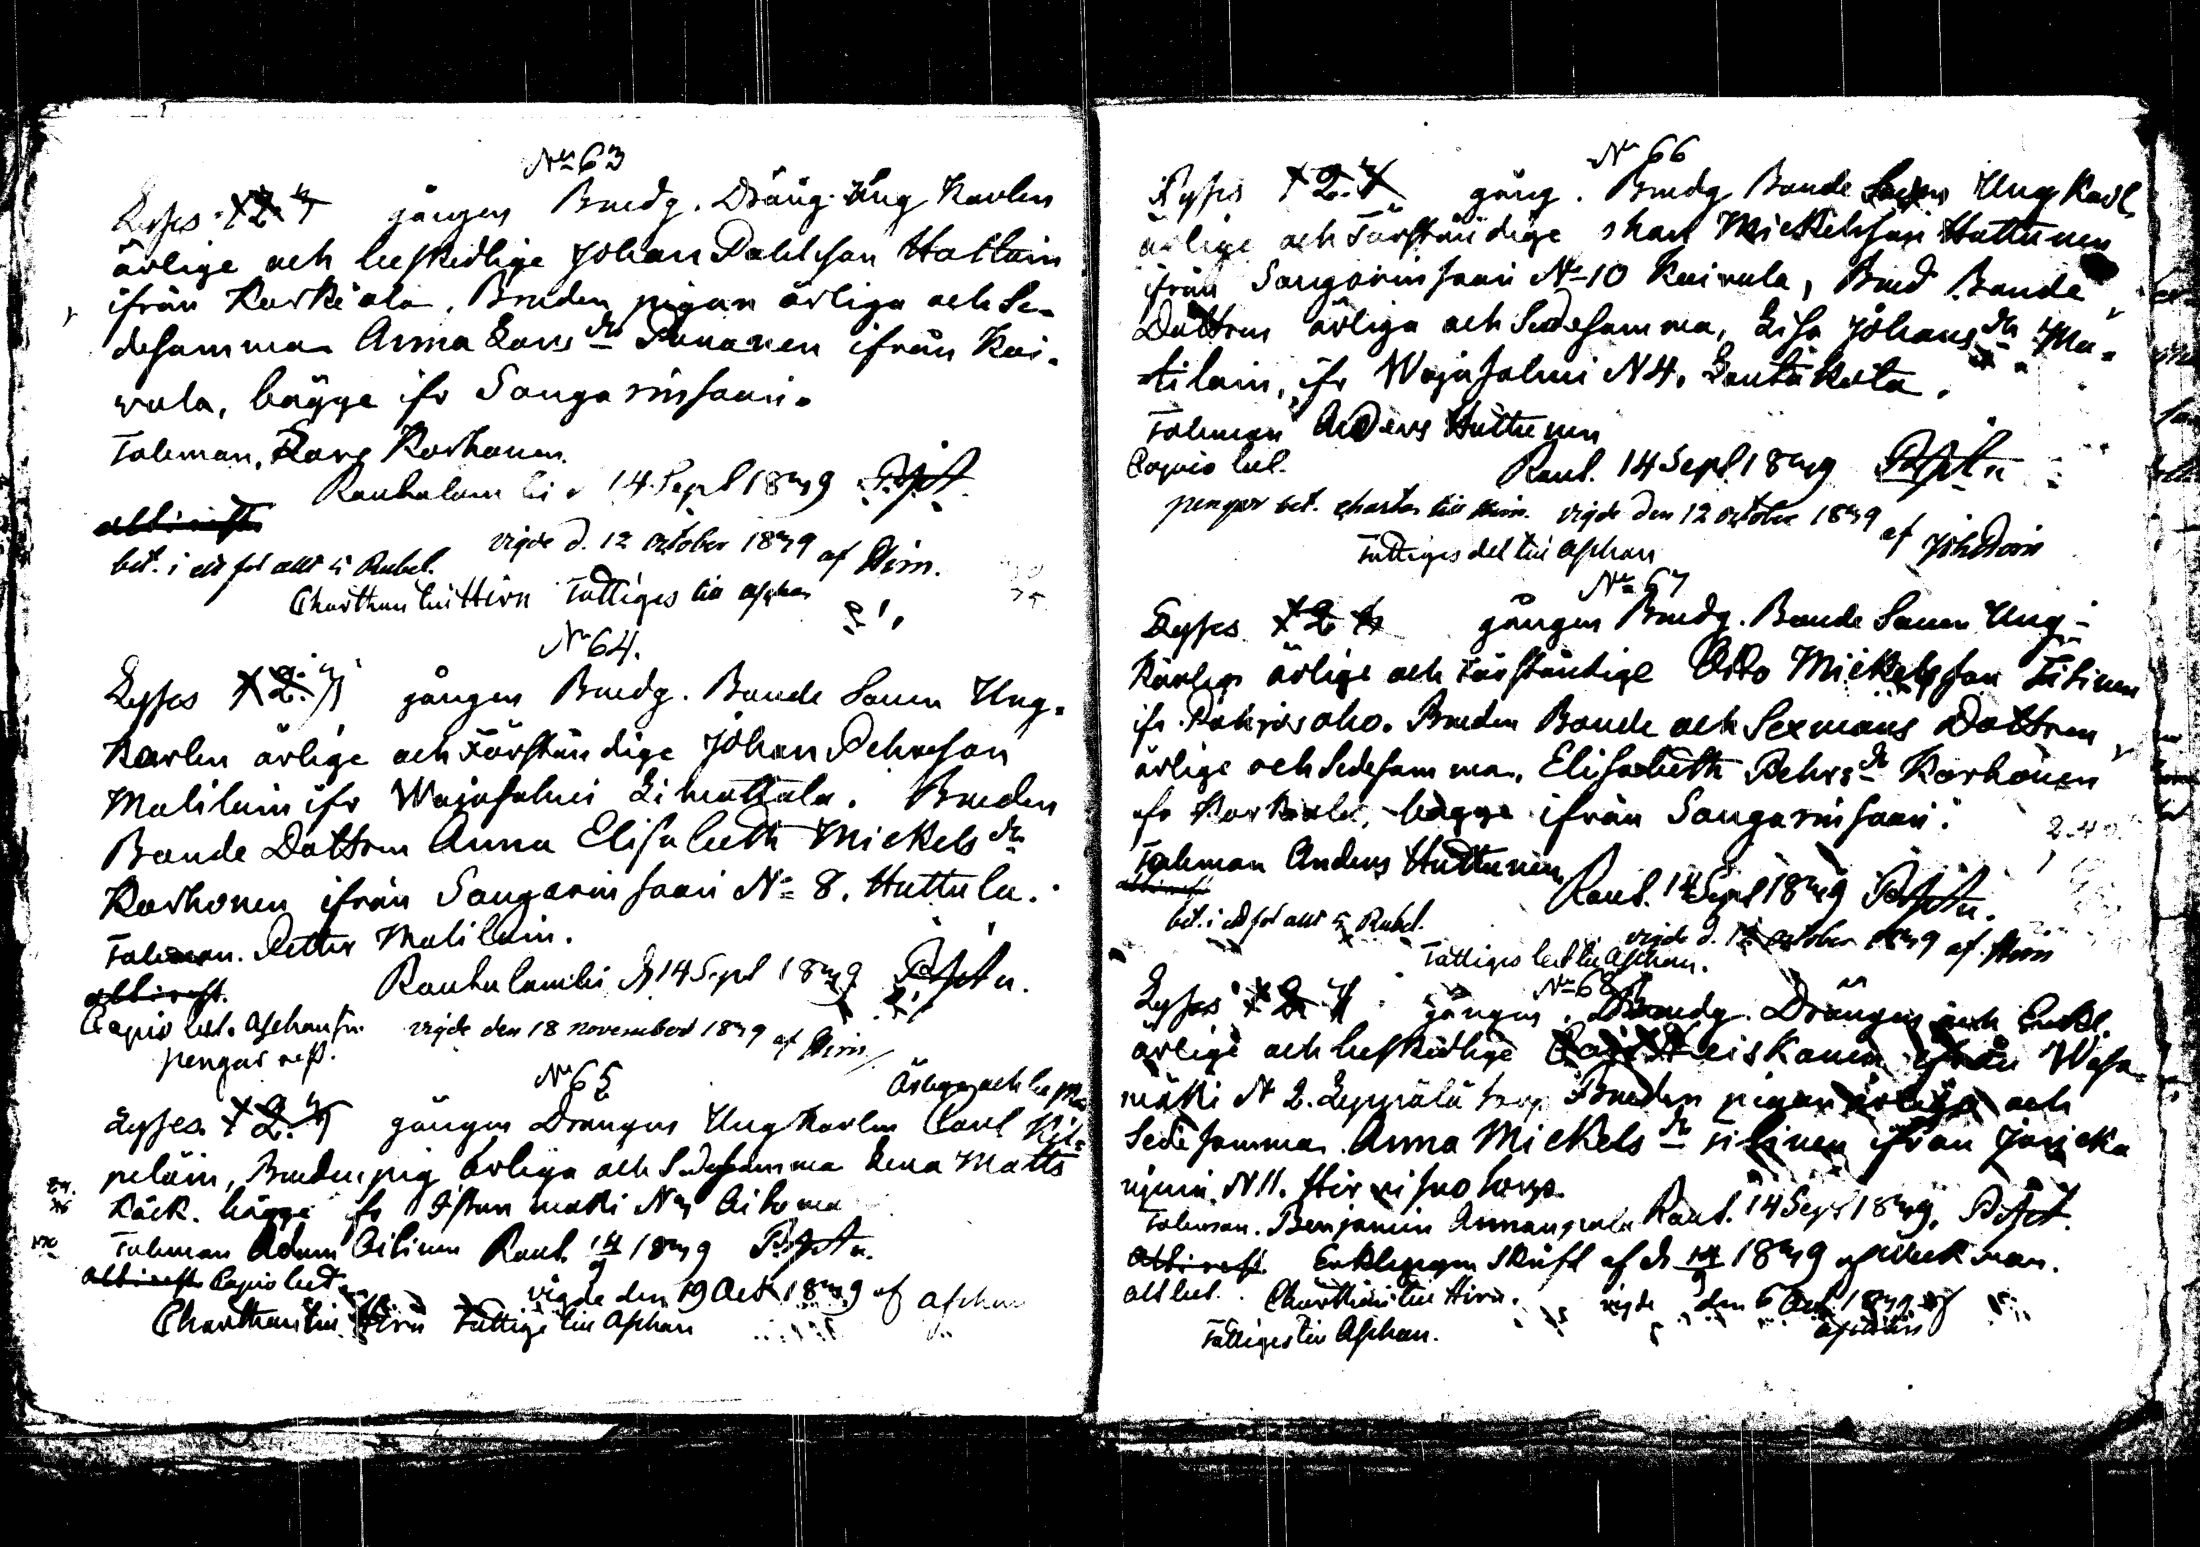 No 63
Lyses 1 2. 3 gången Brudg. Dräng. Ung Karlen
ärlige och beskedlige Johan Pohlson Hallain
ifrån Korkiala. Bruden pigan ärliga och Se-
desamma Anna Larsdr Panonen ifrån Kai-
vula, bägge ifr Sangarinsaari.
Taleman, Lars Korhonen.
Rautalambi d 14 Sept 1849
allt rest
bet. i ett för allt 5 Rubel. vigde d. 12 october 1849 af Hirn.
Charthan till Hirn Fattiges till Aschan
No 64.
Lyses 1 2. 3 gången Brudg. Bonde Sonen Ung-
Karlen ärlige och Förståndige Johan Pehrson
Matilain ifr Wajasalmi Limattala. Bruden
Bonde Dottren Anna Elisabeth Mickelsdr
Korhonen ifrån Sangarinsaari No 8. Huttula.
Taleman. Petter Matilain.
Rautalambi d 14 Sept 1849
allt rest.
Capio bet. Aschan
pengar rest. vigde den 18 november 1849 af Hirn
No 65
Ärlige och be
Lyses 1 2. 3 gången Drängen Ung Karlen Carl Kil-
peläin, Bruden pig ärliga och Sedesamma Lena Matts
Räck. bägge fr Istunmäki N
Taleman Adam Oilinen Raut. 14/9 1849
allt rest Capio bet
vigde den 19 Oct 1849 af Aschan
Charthan till Hirn Fattige till Aschan
No 66
Lyses 1 2. 3 gång. Brudg Bonde Sonen Ung Karl.
ärlige och Förståndige Mickelsson Huttunen
ifrån Sangarinsaari No 10 Kaivula, Brud Bonde
Dottren ärliga och Sedesamma, Lisa Johansdr Ma-
tilain, ifr Wajasalmi N 4. Lautakota.
Taleman Anders Huttunen
Capio bet. Raut. 14 Sept. 1849
pengar bet. charta till Hirn. vigde den 12 october 1849 af Joh Hirn
Fattiges del till Aschan
No 67
Lyses 1 2 3 gången Brudg. Bonde Sonen Ung-
Karlen ärlige och Förståndige Otto Mickelsson Tiitinen
ifr. Pakrisaho. Bruden Bonde och Sexmans Dottren
ärliga och Sedesamma, Elisabeth Pehrsdr Korhonen
fr Korkiala, bägge ifrån Sangarinsaari.
Taleman Anders Huttunen
Raut. 14 Sept 1849
allt rest
bet. i ett för allt 5 Rubel.
vigde d. 12 october 1849 af Hirn
Fattiges bet till Aschan.
No 68
Lyses 1 2 3 gången. Brudg. Drängen och Enkl.
ärlige och beskedlige Leiskanen ifrån Wesa-
mäki N 2. Leppälä torp Bruden pigan ärliga och
Sedesamma. Anna Mickelsdr Tiitinen ifrån
N 11. Hirvisuo torp.
Taleman. Benjamin Raut. 14 Sept 1849.
allt rest. Enklingen skrift af d 14/9 1849 af Wickman.
allt bet. Charthan till Hirn. vigde den 6 Oct. 1849 af
Aschan
Fattiges till Aschan.